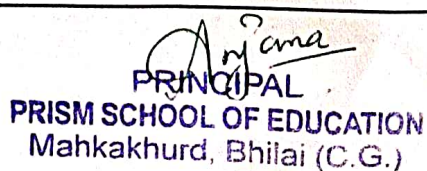 Anjana
PRINCIPAL
PRISM SCHOOL OF EDUCATION
Mahkakhurd, Bhilai (C.G.)